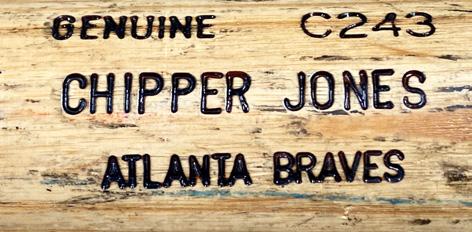 GENUINE C243
CHIPPER JONES
ATLANTA BRAVES